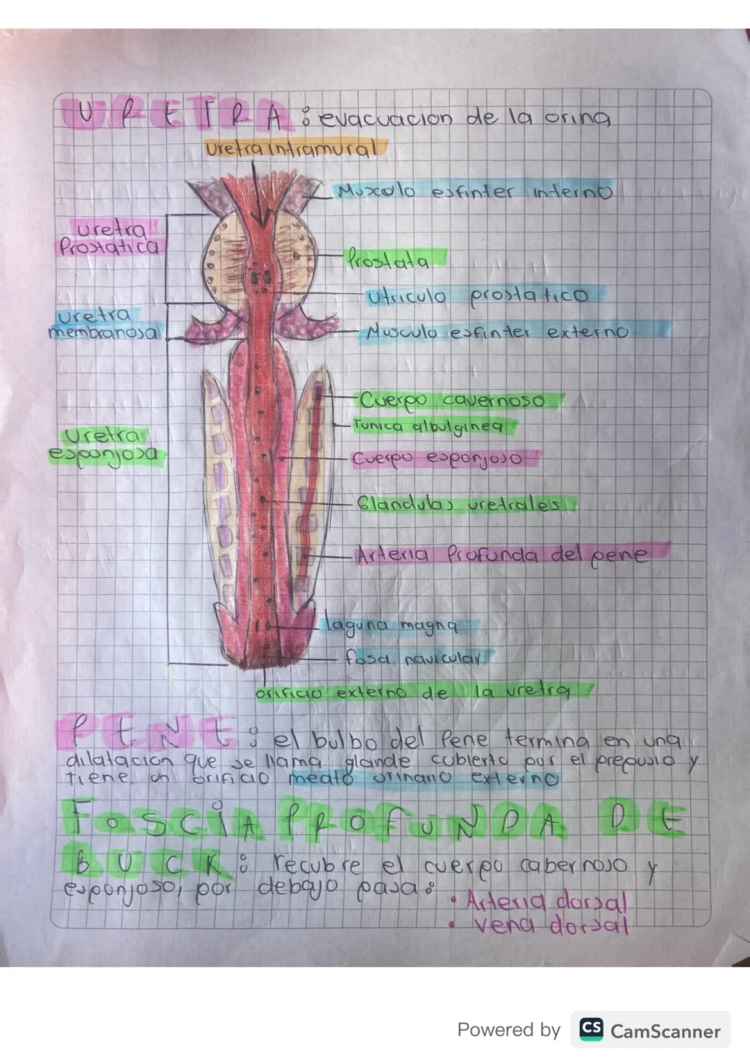 URETRA: evacuacion de la orina
Uretra intramural
Muscolo esfinter interno
uretra
Prostatica
Prostata
Utriculo prostatico
uretra
membranosa
Musculo esfinter externo
Cuerpo cavernoso
Tunica albulginea
uretra
esponjosa
Cuerpo esponjoso
Glandulas uretrales
Arteria Profunda del pene
laguna magna
fosa navicular
orificio externo de la uretra
PENE: el bulbo del Pene termina en una
dilatacion que se llama glande cubierto por el prepusio y
tiene un orificio meato urinario externo
FASCIA PROFUNDA DE
BUCK: recubre el cuerpo cabernoso y
esponjoso, por debajo pasa:
• Arteria dorsal
• Vena dorsal
Powered by CS CamScanner